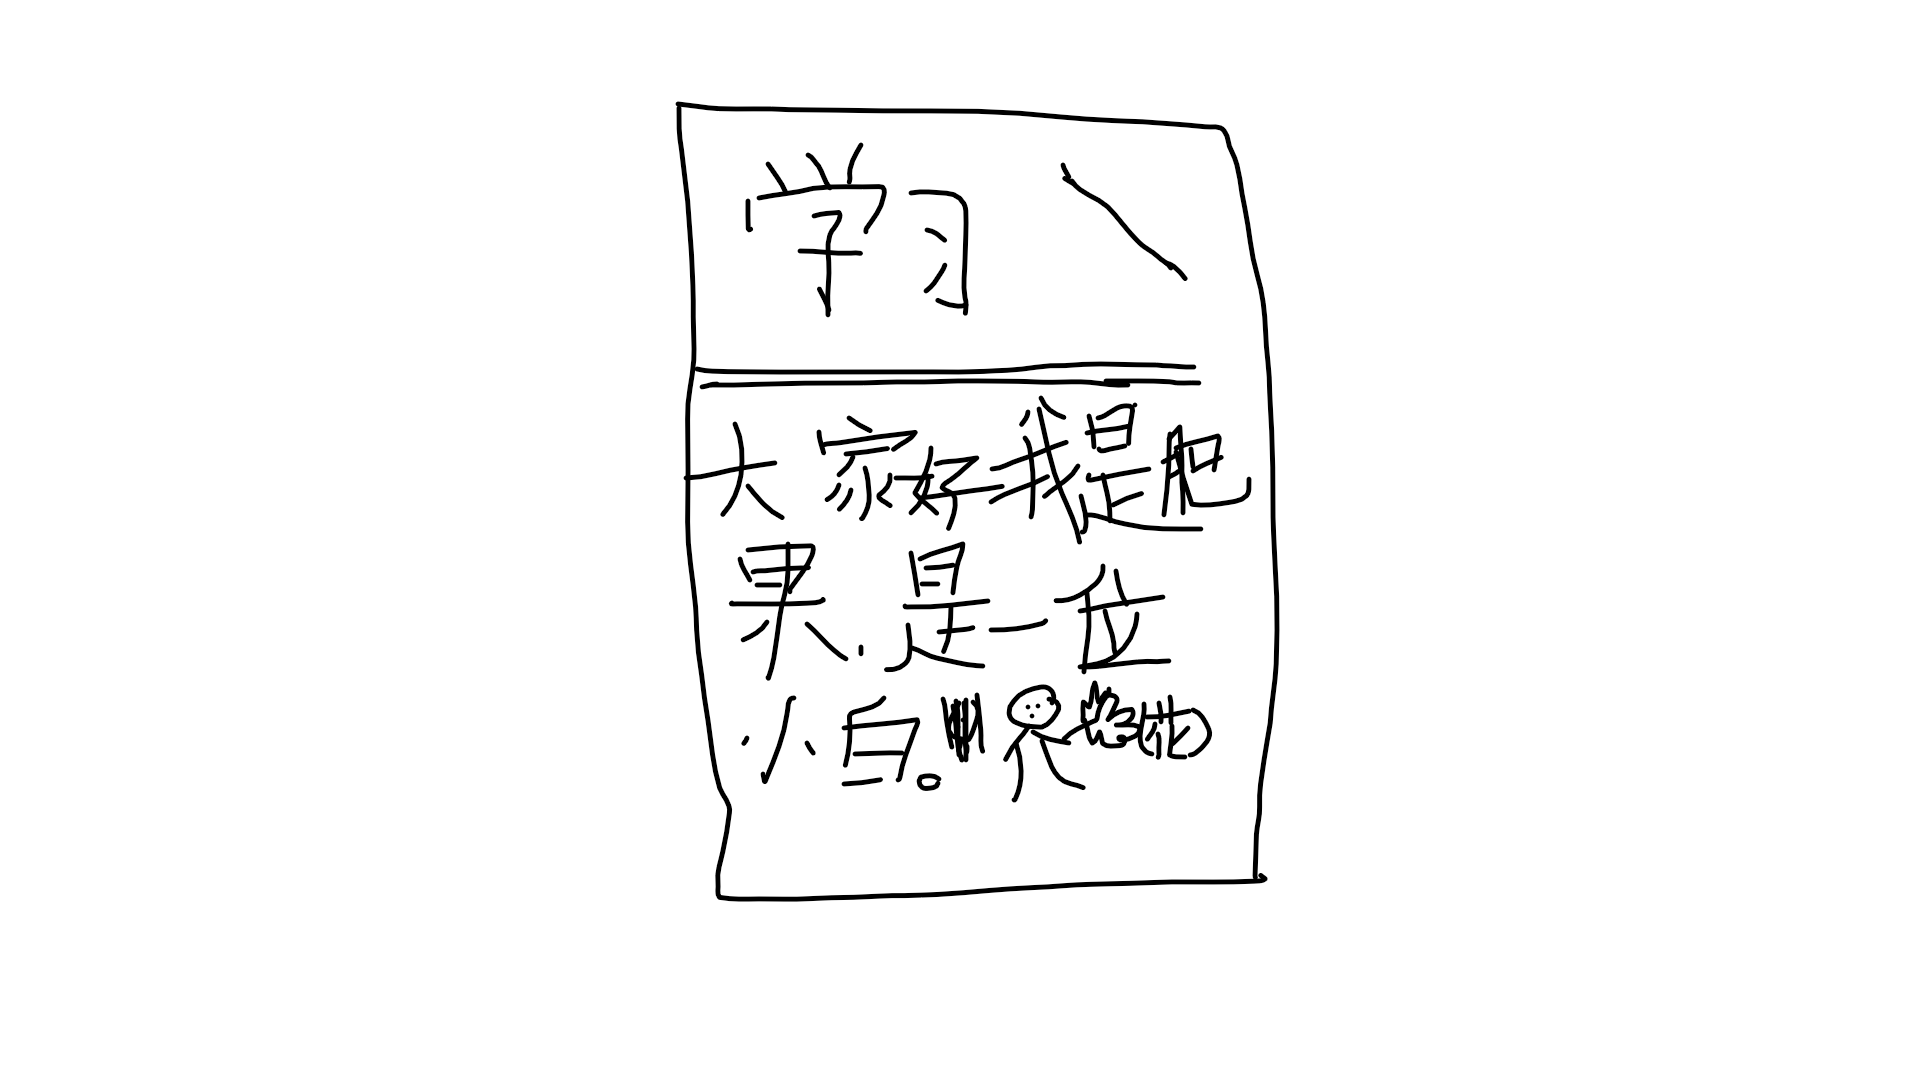 学习
大家好我是杷
果.是一位
小白。